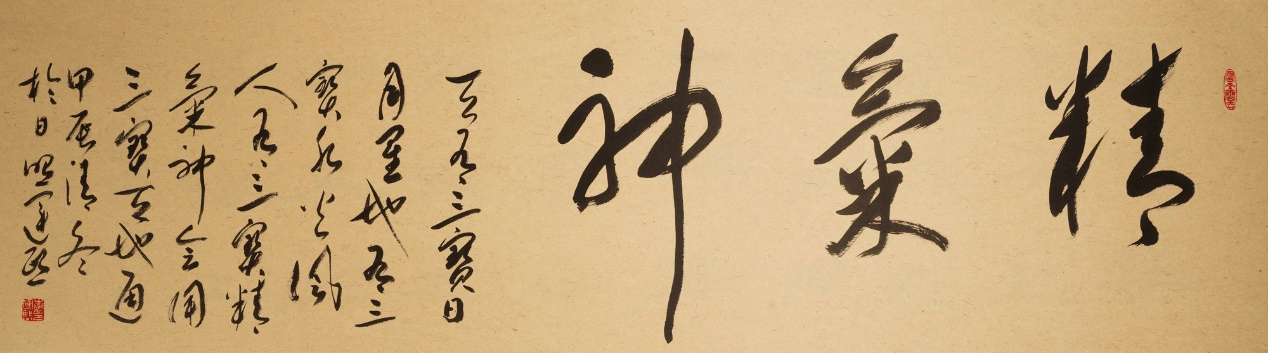 精氣神
天有三寶日
月星地有三
寶水火風
人有三寶精
氣神会用
三寶天地通
甲辰清冬
於日照